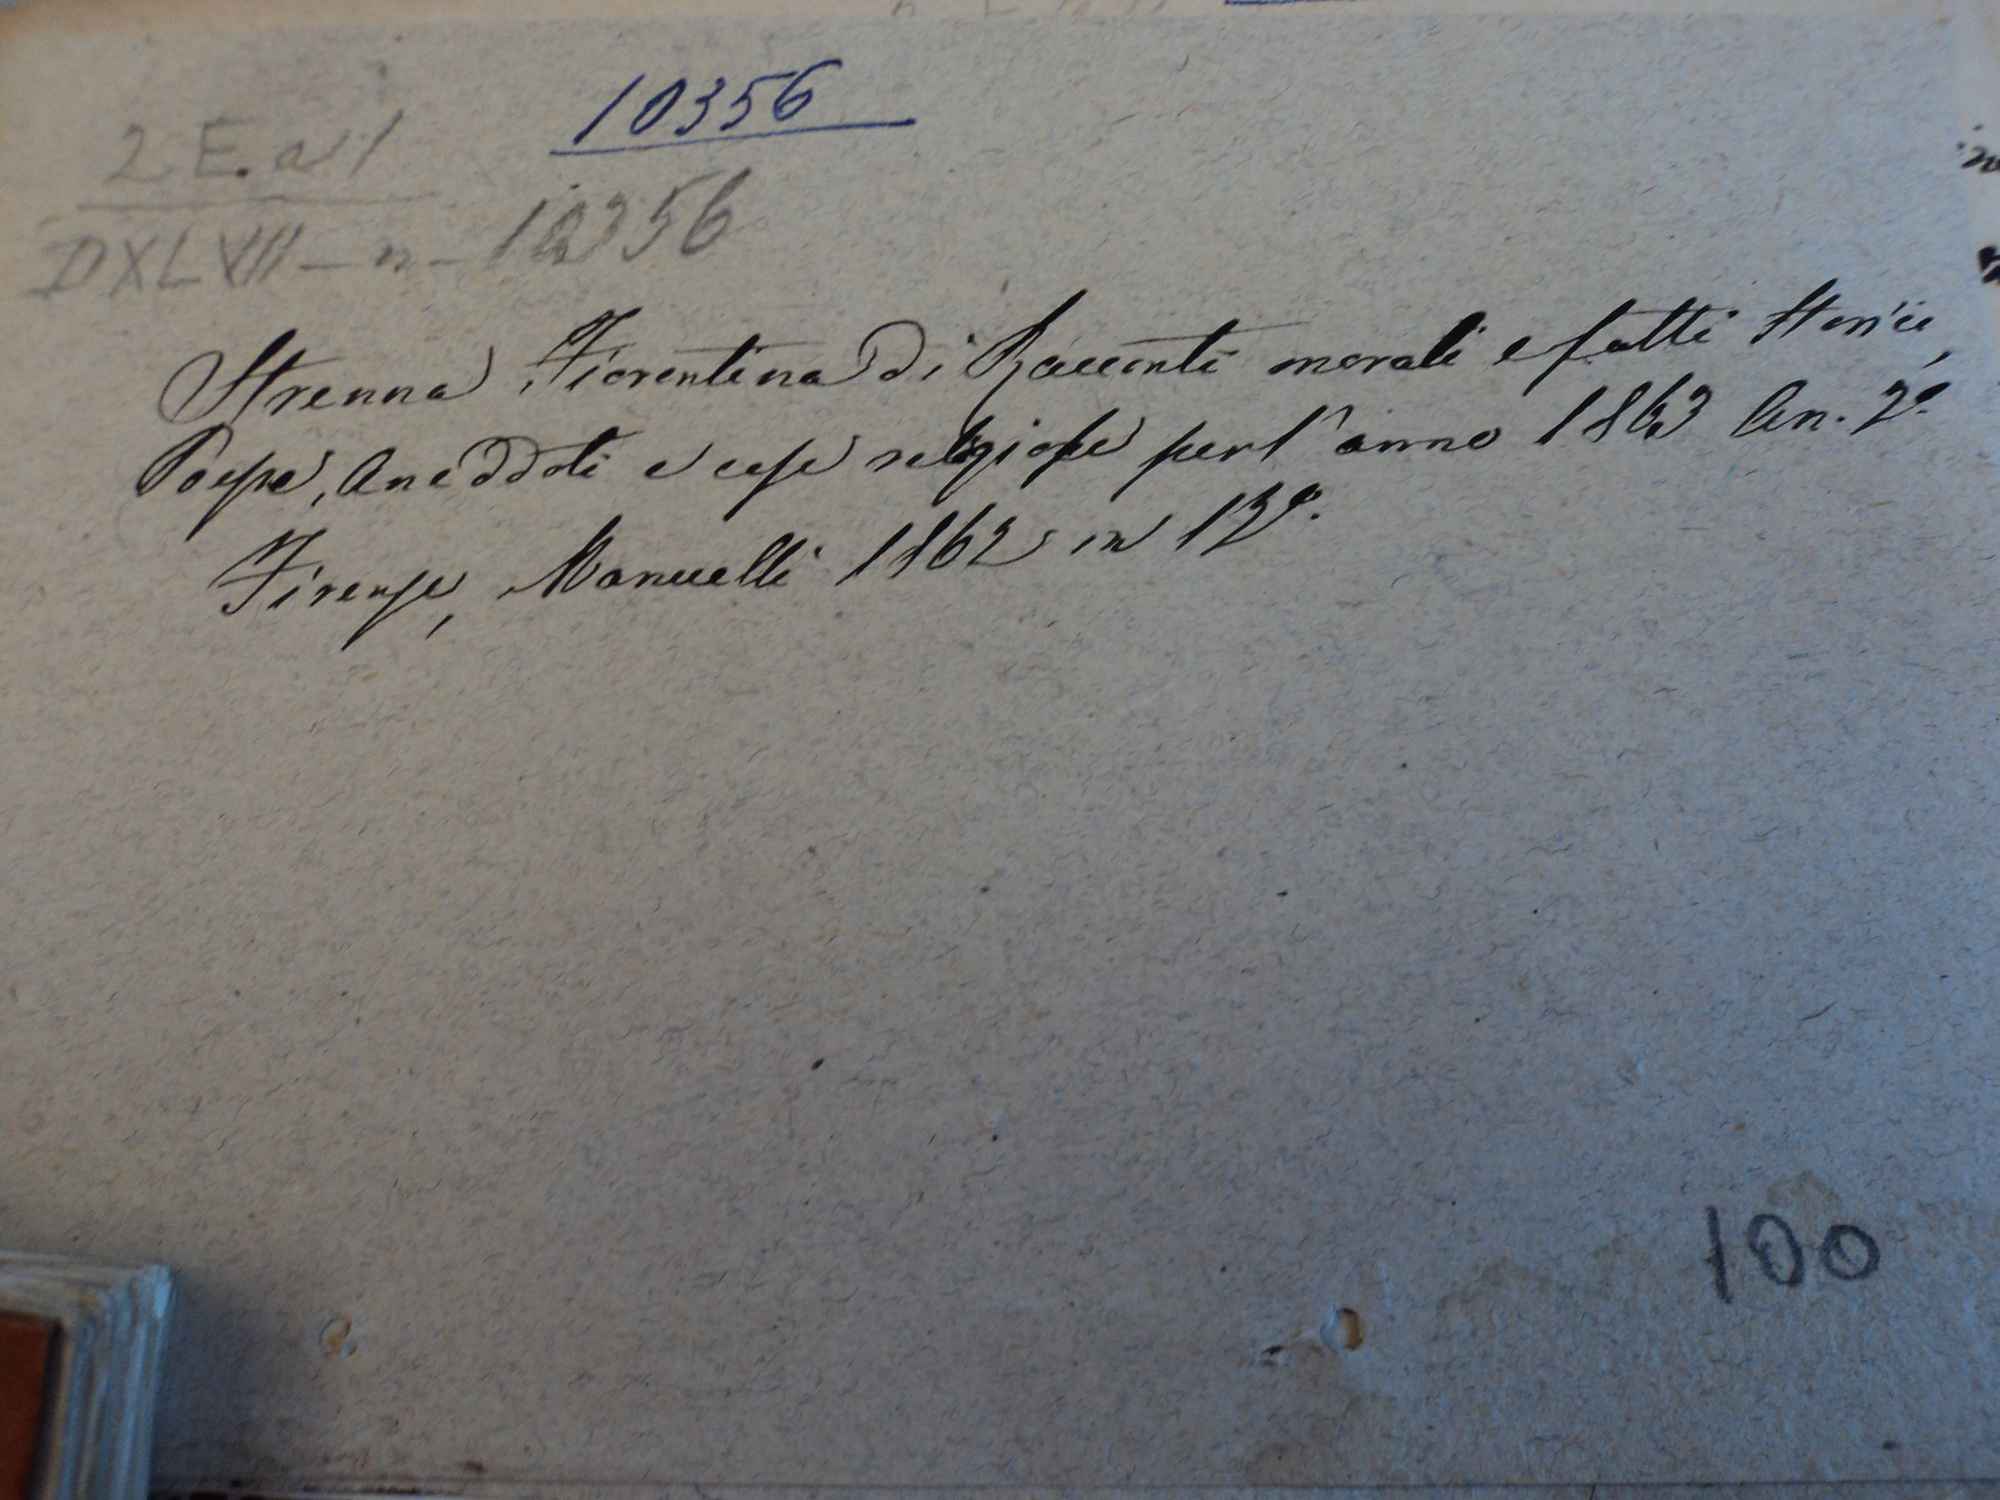 10356
2 E. a 1
DXLVII - n - 10356
Strenna Fiorentina di Racconti morali e fatti storici,
Poesie, Aneddoti e cose religiose per l'anno 1863 An. 2°.
Firenze, Manuelli 1862 in 12°.
100